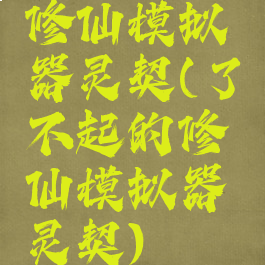 修仙模拟
器灵契(了
不起的修
仙模拟器
灵契)